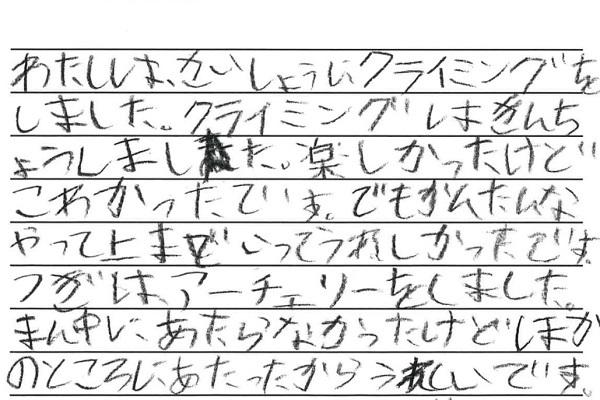 わたしは、さいしょうに、クライミングを
しました。クライミングはきんち
ょうしました。楽しかったけど
こわかったです。でもがんたんな
やって上までいってうれしかったです。
つぎは、アーチェリーをしました。
まん中に、あたらなかったけどほか
のところにあたったからうれしいです。